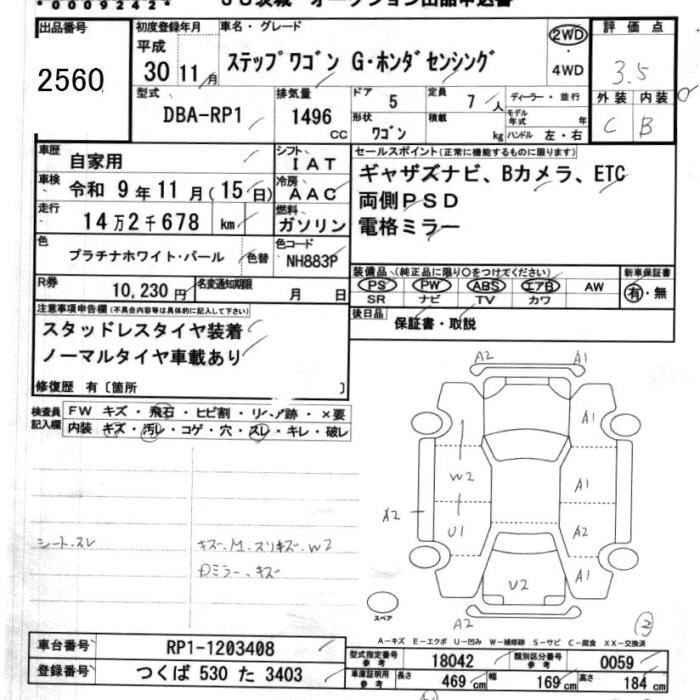 *00092424*
ＪＵ茨城 オークション出品申込書
出品番号 2560
初度登録年月 平成 30 11月
車名・グレード ステップワゴン G・ホンダセンシング
2WD・4WD
評価点 3.5
外装 C 内装 B
型式 DBA-RP1
排気量 1496 CC
ドア 5
定員 7人
ディーラー・並行
形状 ワゴン
積載 kg
モデル年式 年
ハンドル 左・右
車歴 自家用
シフト IAT
車検 令和 9年 11月(15日)
冷房 AAC
走行 14万2千678 km
燃料 ガソリン
色 プラチナホワイト・パール 色替
色コード NH883P
R券 10,230円
名変通知期限 月 日
セールスポイント(正常に機能するものに限ります)
ギャザズナビ、Bカメラ、ETC
両側PSD
電格ミラー
装備品 (純正品に限り○をつけてください)
PS PW ABS エアB AW
SR ナビ TV カワ
新車保証書 有・無
後日品 保証書・取説
注意事項申告欄(不具合内容等は具体的に記入して下さい)
スタッドレスタイヤ装着
ノーマルタイヤ車載あり
修復歴 有〔箇所 〕
検査員記入欄
FW キズ・飛石・ヒビ割・リペア跡・×要
内装 キズ・汚レ・コゲ・穴・スレ・キレ・破レ
シート.スレ
キズ.M.スリキズ.W2
Dミラー.キズ
A2 A1
A1
W2 A1
A2 U1 A2
A1
U2
A2
3
スペア
A-キズ E-エクボ U-凹み W-補修跡 S-サビ C-腐食 XX-交換済
車台番号 RP1-1203408
登録番号 つくば 530 た 3403
型式指定番号 参考 18042
類別区分番号 参考 0059
車庫証明用 参考 長さ 469 cm 幅 169 cm 高さ 184 cm